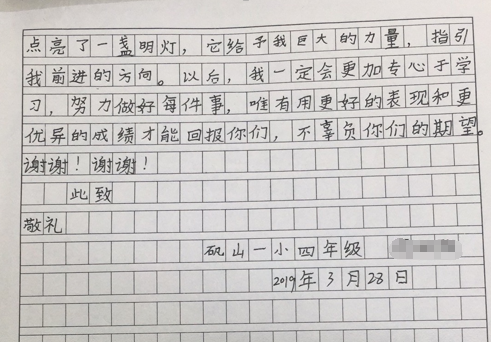 点亮了一盏明灯，它给予我巨大的力量，指引
我前进的方向。以后，我一定会更加专心于学
习，努力做好每件事，唯有用更好的表现和更
优异的成绩才能回报你们，不辜负你们的期望。
谢谢！谢谢！
此致
敬礼
矾山一小四年级
2019年3月28日